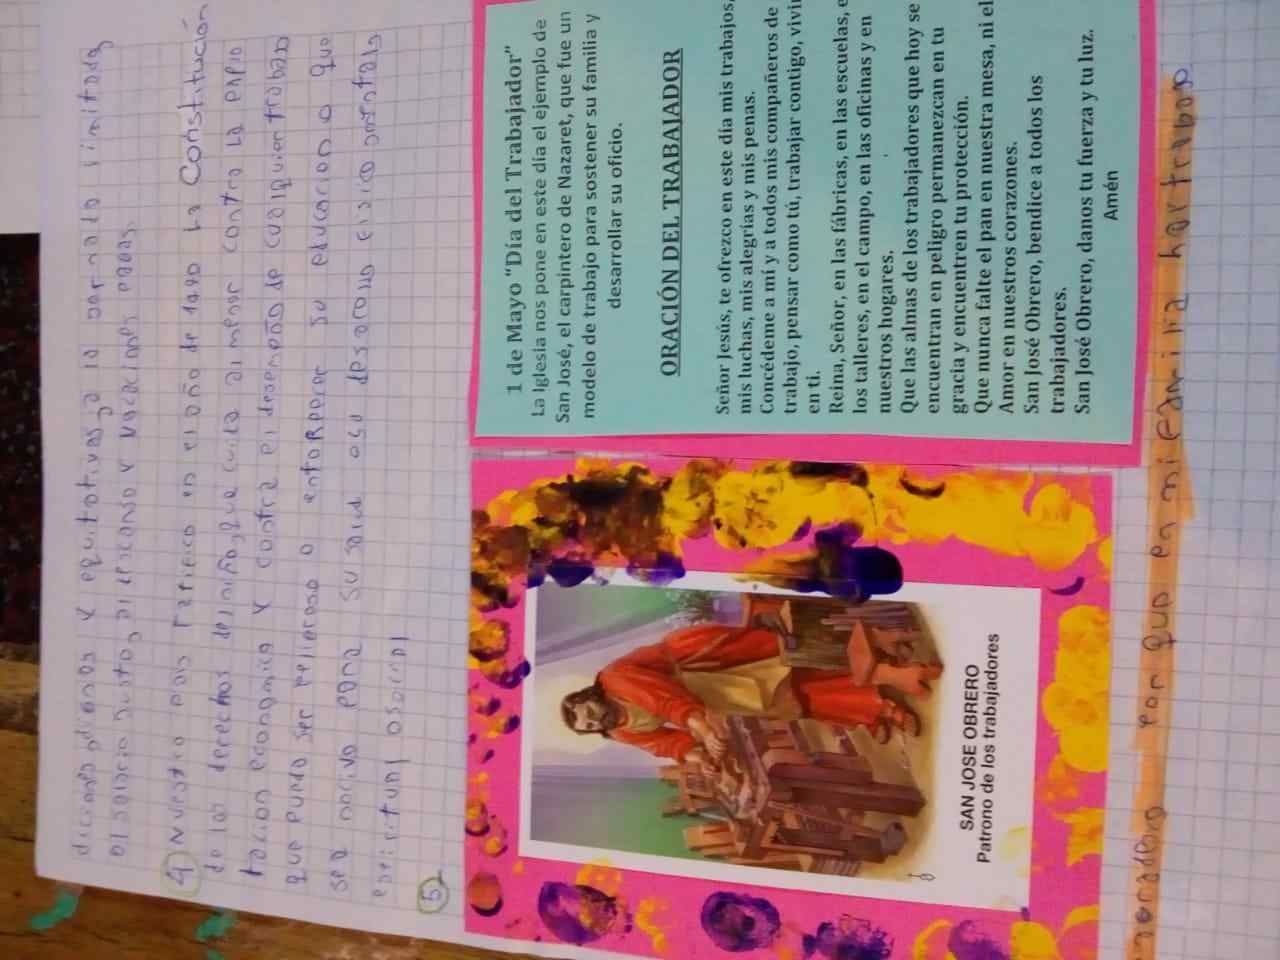 dicanes dienas y equitativas, a lo Jornada limitada
al salario Justo, al descanso y vacaciones pagas.
4) Nuestro pais ratifico en el año de 1990 La Constitución
de los derechos del niño, que cuida al menor contra La explo
tacion economica y contra el desempeño de cualquier trabajo
que puede ser peligroso o entorpecer su educacion o que
sea nocivo para su salud o su desarollo fisico mental
espiritual o social
5)
1 de Mayo “Día del Trabajador”
La Iglesia nos pone en este día el ejemplo de
San José, el carpintero de Nazaret, que fue un
modelo de trabajo para sostener su familia y
desarrollar su oficio.
ORACIÓN DEL TRABAJADOR
Señor Jesús, te ofrezco en este día mis trabajos,
mis luchas, mis alegrías y mis penas.
Concédeme a mí y a todos mis compañeros de
trabajo, pensar como tú, trabajar contigo, vivi
en ti.
Reina, Señor, en las fábricas, en las escuelas, e
los talleres, en el campo, en las oficinas y en
nuestros hogares.
Que las almas de los trabajadores que hoy se
encuentran en peligro permanezcan en tu
gracia y encuentren tu protección.
Que nunca falte el pan en nuestra mesa, ni el
Amor en nuestros corazones.
San José Obrero, bendice a todos los
trabajadores.
San José Obrero, danos tu fuerza y tu luz.
Amén
SAN JOSE OBRERO
Patrono de los trabajadores
por que en mi familia hay trabajo